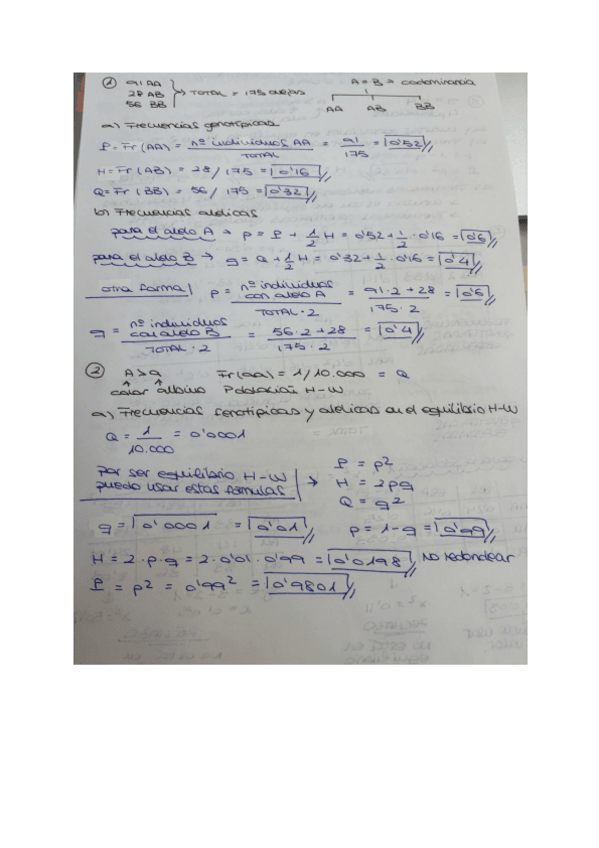 ① 91 AA
28 AB
56 BB
→ TOTAL = 175 ovejas
A = B → codominancia
AA AB BB
a) Frecuencias genotípicas
P = Fr (AA) = nº individuos AA / TOTAL = 91 / 175 = 0'52
H = Fr (AB) = 28 / 175 = 0'16
Q = Fr (BB) = 56 / 175 = 0'32
b) Frecuencias alélicas
para el alelo A → p = P + 1/2 H = 0'52 + 1/2 · 0'16 = 0'6
para el alelo B → q = Q + 1/2 H = 0'32 + 1/2 · 0'16 = 0'4
otra forma | p = nº individuos con alelo A / TOTAL · 2 = 91 · 2 + 28 / 175 · 2 = 0'6
q = nº individuos con alelo B / TOTAL · 2 = 56 · 2 + 28 / 175 · 2 = 0'4
② A > a Fr (aa) = 1 / 10.000 = Q
color albino Población H-W
a) Frecuencias genotípicas y alélicas en el equilibrio H-W
Q = 1 / 10.000 = 0'0001
por ser equilibrio H-W
puedo usar estas fórmulas →
P = p²
H = 2pq
Q = q²
q = √0'0001 = 0'01 p = 1 - q = 0'99
H = 2 · p · q = 2 · 0'01 · 0'99 = 0'0198 No redondear
P = p² = 0'99² = 0'9801